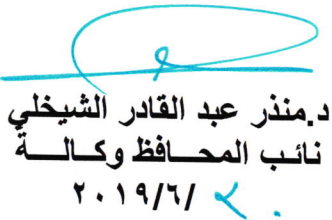 د.منذر عبد القادر الشيخلي
نائب المحافظ وكالة
٢٠١٩/٦/٢٠